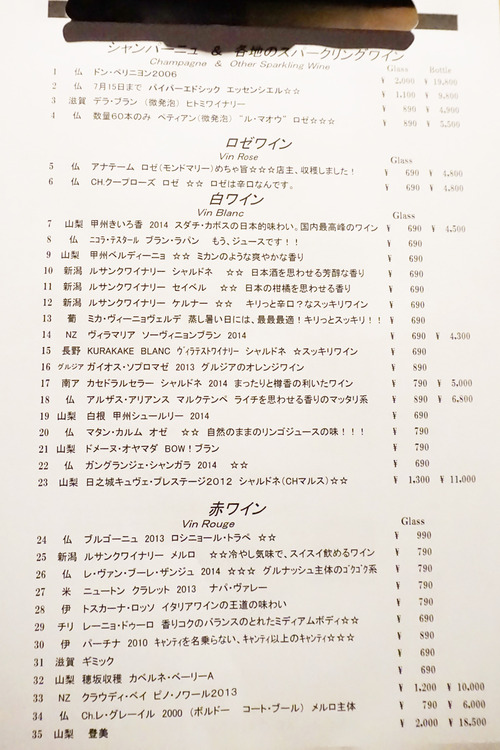 シャンパーニュ & 各地のスパークリングワイン
Champagne & Other Sparkling Wine
Glass Bottle
1 仏 ドン・ペリニヨン2006 ¥ 2,000 ¥ 19,800
2 仏 7月15日まで パイパーエドシック エッセンシエル☆☆ ¥ 1,100 ¥ 9,800
3 滋賀 デラ・ブラン (微発泡) ヒトミワイナリー ¥ 890 ¥ 4,900
4 仏 数量60本のみ ペティアン(微発泡) "ル・マオウ" ロゼ☆☆☆ ¥ 890 ¥ 5,500
ロゼワイン
Vin Rose
Glass
5 仏 アナテーム ロゼ(モンドマリー)めちゃ旨☆☆☆店主、収穫しました! ¥ 690 ¥ 4,800
6 仏 CH.クーブローズ ロゼ ☆☆ ロゼは辛口なんです。 ¥ 690 ¥ 4,800
白ワイン
Vin Blanc
Glass
7 山梨 甲州きいろ香 2014 スダチ・カボスの日本的味わい。国内最高峰のワイン ¥ 690 ¥ 4,500
8 仏 ニコラ・テスタール ブラン・ラパン もう、ジュースです!! ¥ 690
9 山梨 甲州ベルディーニョ ☆☆ ミカンのような爽やかな香り ¥ 690
10 新潟 ルサンクワイナリー シャルドネ ☆☆ 日本酒を思わせる芳醇な香り ¥ 690
11 新潟 ルサンクワイナリー セイベル ☆☆ 日本の柑橘を思わせる香り ¥ 690
12 新潟 ルサンクワイナリー ケルナー ☆☆ キリっと辛口?なスッキリワイン ¥ 690
13 葡 ミカ・ヴィーニョヴェルデ 蒸し暑い日には、最最最適!キリっとスッキリ!! ¥ 690
14 NZ ヴィラマリア ソーヴィニョンブラン 2014 ¥ 690 ¥ 4,300
15 長野 KURAKAKE BLANC ヴィラテストワイナリー シャルドネ ☆スッキリワイン ¥ 690
16 グルジア ガイオス・ソプロマゼ 2013 グルジアのオレンジワイン ¥ 890
17 南ア カセドラルセラー シャルドネ 2014 まったりと樽香の利いたワイン ¥ 790 ¥ 5,000
18 仏 アルザス・アリアンス マルクテンペ ライチを思わせる香りのマッタリ系 ¥ 890 ¥ 6,800
19 山梨 白根 甲州シュールリー 2014 ¥ 690
20 仏 マタン・カルム オゼ ☆☆ 自然のままのリンゴジュースの味!!! ¥ 790
21 山梨 ドメーヌ・オヤマダ BOW!ブラン ¥ 790
22 仏 ガングランジェ・シャンガラ 2014 ☆☆ ¥ 690
23 山梨 日之城キュヴェ・プレステージ2012 シャルドネ(CHマルス)☆☆ ¥ 1,300 ¥ 11,000
赤ワイン
Vin Rouge
Glass
24 仏 ブルゴーニュ 2013 ロシニョール・トラペ ☆☆ ¥ 990
25 新潟 ルサンクワイナリー メルロ ☆☆冷やし気味で、スイスイ飲めるワイン ¥ 790
26 仏 レ・ヴァン・ブーレ・ザンジュ 2014 ☆☆☆ グルナッシュ主体のゴクゴク系 ¥ 790
27 米 ニュートン クラレット 2013 ナパ・ヴァレー ¥ 790
28 伊 トスカーナ・ロッソ イタリアワインの王道の味わい ¥ 790
29 チリ レーニョ・ドゥーロ 香りコクのバランスのとれたミディアムボディ☆☆ ¥ 690
30 伊 パーチナ 2010 キャンティを名乗らない、キャンティ以上のキャンティ☆☆☆ ¥ 890
31 滋賀 ギミック ¥ 690
32 山梨 穂坂収穫 カベルネ・ベーリーA ¥ 690
33 NZ クラウディ・ベイ ピノ・ノワール2013 ¥ 1,200 ¥ 10,000
34 仏 Ch.レ・グレイル 2000 (ボルドー コート・ブール) メルロ主体 ¥ 790 ¥ 6,000
35 山梨 登美 ¥ 2,000 ¥ 18,500